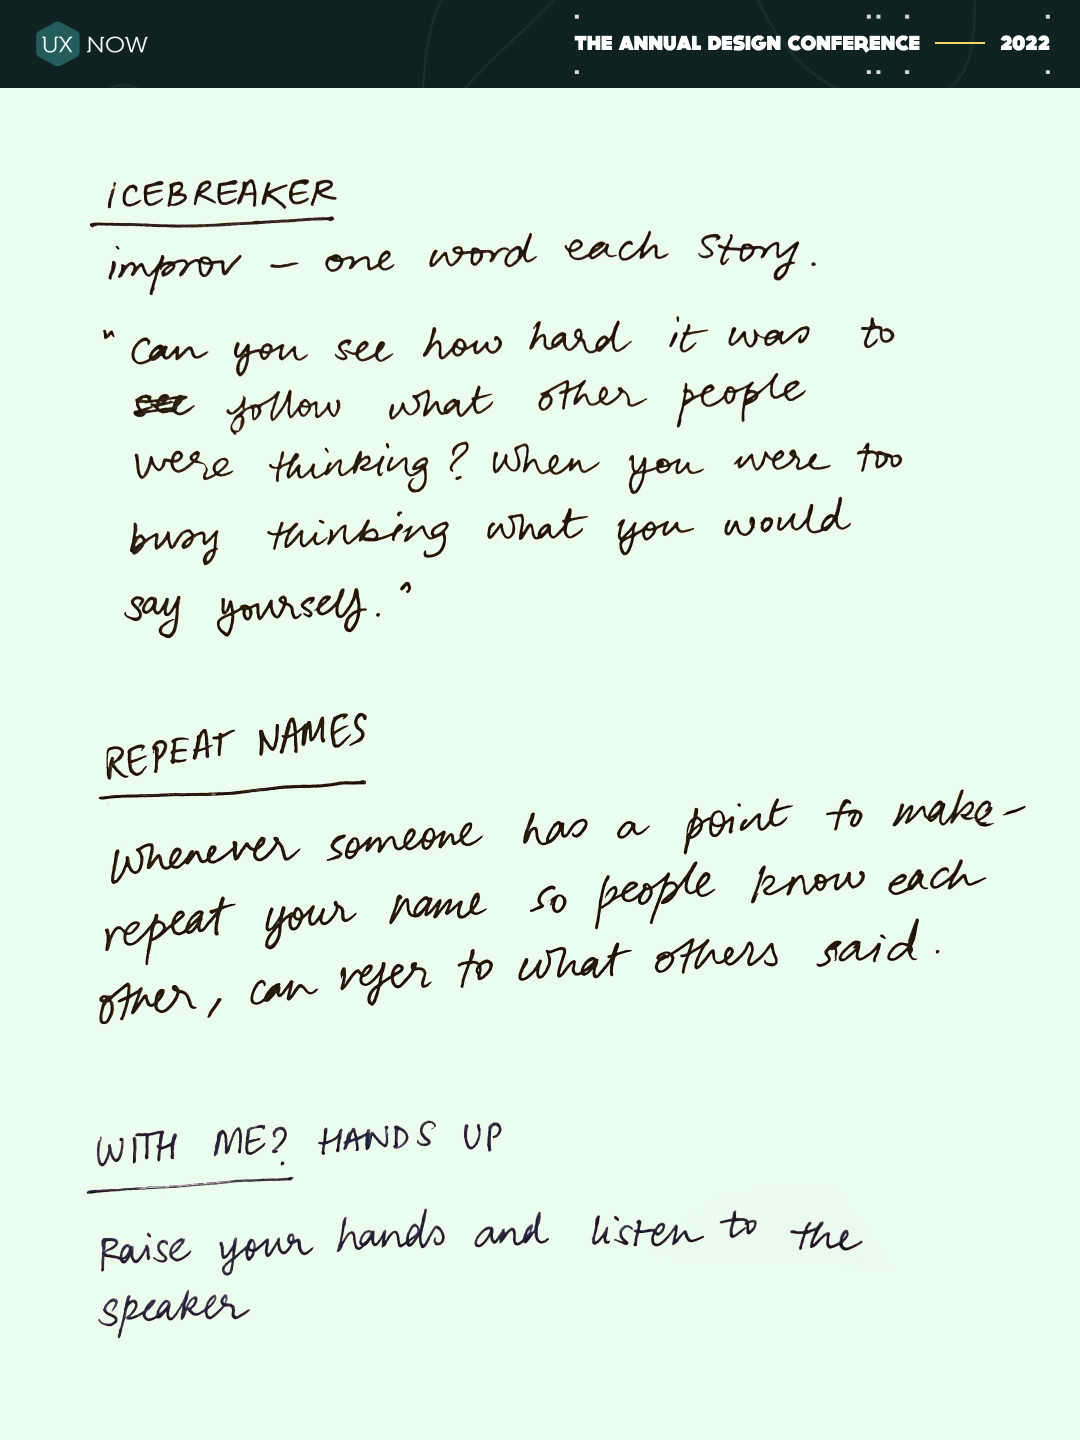 UX NOW
THE ANNUAL DESIGN CONFERENCE — 2022
ICEBREAKER
improv – one word each story.
"Can you see how hard it was to
see follow what other people
were thinking? When you were too
busy thinking what you would
say yourself."
REPEAT NAMES
Whenever someone has a point to make –
repeat your name so people know each
other, can refer to what others said.
WITH ME? HANDS UP
Raise your hands and listen to the
speaker